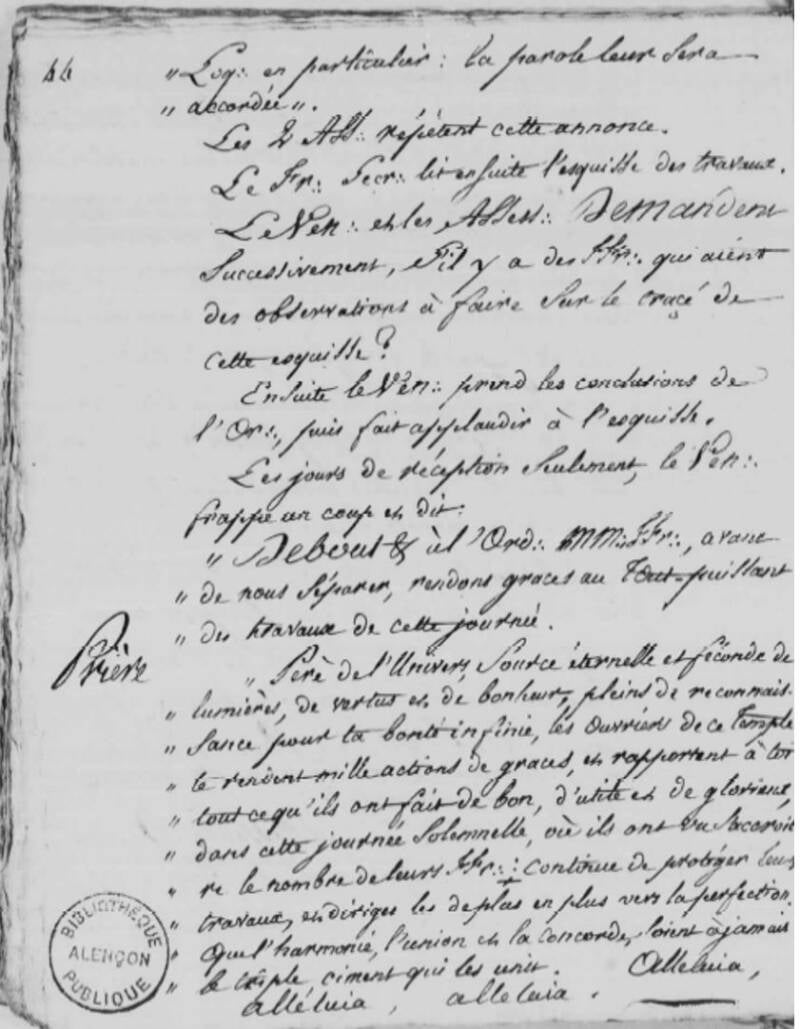 44
" Log∴ en particulier : la parole leur sera
" accordée ".
Les 2 Ass∴ répètent cette annonce.
Le Fr∴ Secr∴ lit ensuite l'esquisse des travaux.
Le Vén∴ et les Assess∴ Demandent
Successivement, s'il y a des FFr∴ qui aient
des observations à faire sur le tracé de
cette esquisse ?
Ensuite le Vén∴ prend les conclusions de
l'Or∴, puis fait applaudir à l'esquisse.
Les jours de réception seulement, le Vén∴
frappe un coup et dit :
" Debout & à l'Ord∴ MM∴ FFr∴, avant
" de nous séparer, rendons graces au Tout-puissant
" des travaux de cette journée.
Prière
" Père de l'Univers, Source éternelle et féconde de
" lumières, de vertus et de bonheur, pleins de reconnais-
" sance pour ta bonté infinie, les ouvriers de ce Temple
" te rendent mille actions de graces, et rapportent à toi
" tout ce qu'ils ont fait de bon, d'utile et de glorieux,
" dans cette journée Solemnelle, où ils ont vu s'accroit-
" re le nombre de leurs FFr∴ : continue de protéger leurs
" travaux, et diriges les de plus en plus vers la perfection.
" Que l'harmonie, l'union et la concorde, soient à jamais
" le triple ciment qui les unit. Alleluia,
alléluia, alleluia.
BIBLIOTHÈQUE
ALENÇON
PUBLIQUE